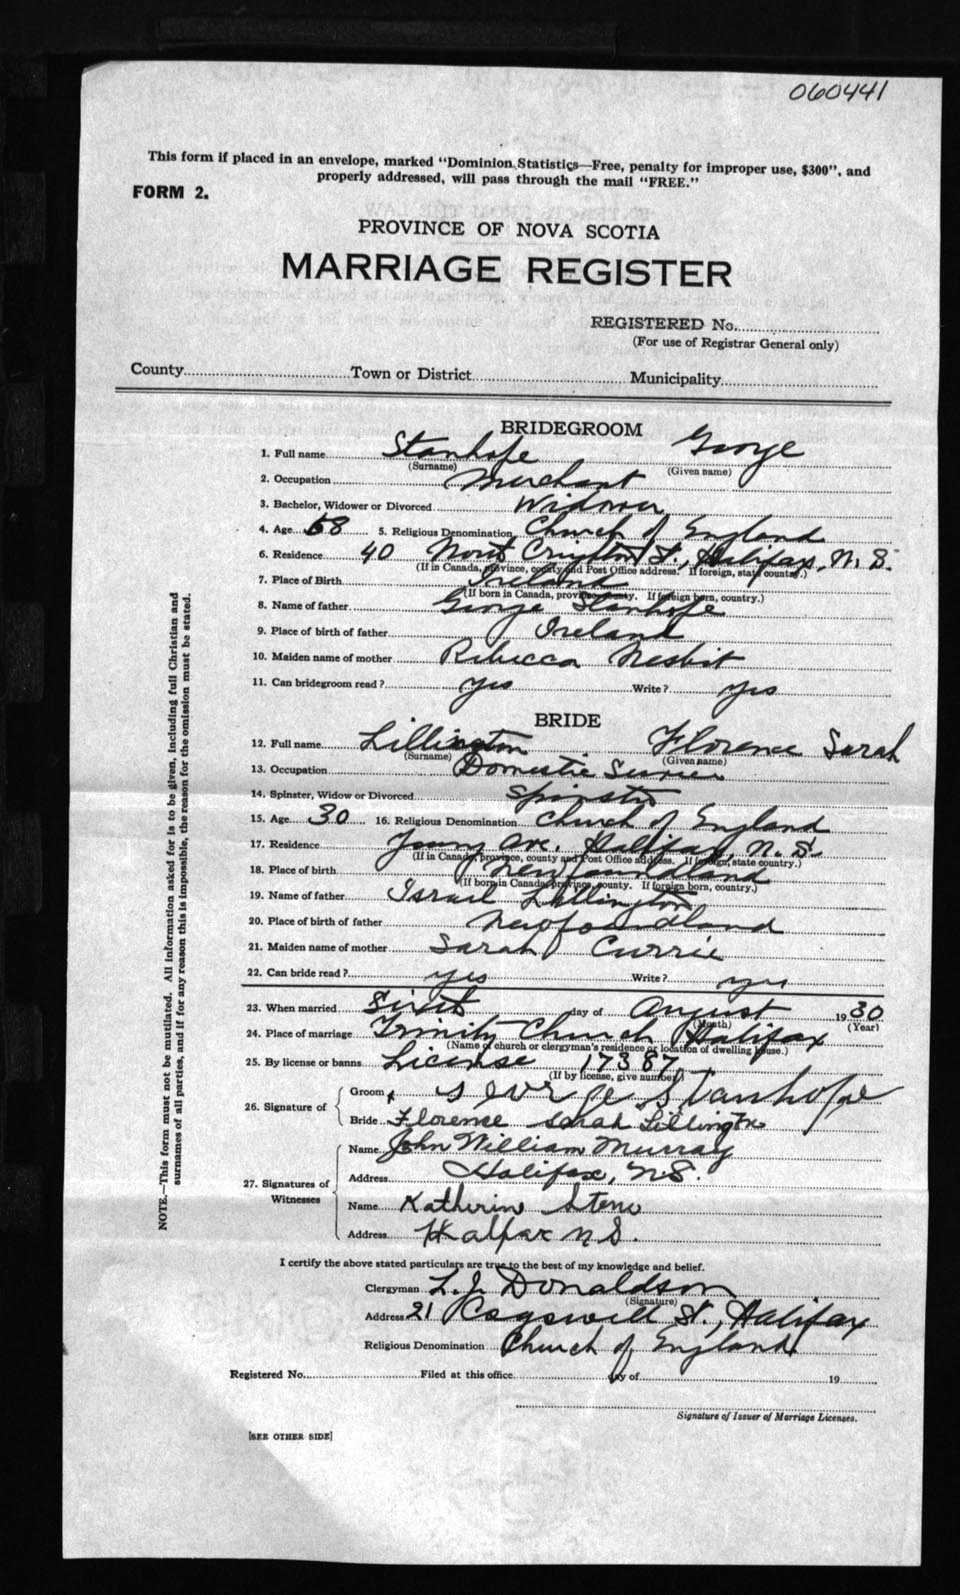 060441
This form if placed in an envelope, marked "Dominion Statistics—Free, penalty for improper use, $300", and
properly addressed, will pass through the mail "FREE."
FORM 2.
PROVINCE OF NOVA SCOTIA
MARRIAGE REGISTER
REGISTERED No.
(For use of Registrar General only)
County Town or District Municipality
BRIDEGROOM
1. Full name Stanhope George
(Surname) (Given name)
2. Occupation Merchant
3. Bachelor, Widower or Divorced Widower
4. Age 68 5. Religious Denomination Church of England
6. Residence 40 North St., Halifax, N.S.
(If in Canada, province, county and Post Office address. If foreign, state country.)
7. Place of Birth Ireland
(If born in Canada, province, county. If foreign born, country.)
8. Name of father George Stanhope
9. Place of birth of father Ireland
10. Maiden name of mother Rebecca Nesbit
11. Can bridegroom read? yes Write? yes
BRIDE
12. Full name Lillington Florence Sarah
(Surname) (Given name)
13. Occupation Domestic Service
14. Spinster, Widow or Divorced Spinster
15. Age 30 16. Religious Denomination Church of England
17. Residence Young Ave. Halifax, N.S.
(If in Canada, province, county and Post Office address. If foreign, state country.)
18. Place of birth Newfoundland
(If born in Canada, province, county. If foreign born, country.)
19. Name of father Israel Lillington
20. Place of birth of father Newfoundland
21. Maiden name of mother Sarah Currie
22. Can bride read? yes Write? yes
23. When married First day of August 1930
(Month) (Year)
24. Place of marriage Trinity Church Halifax
(Name of church or clergyman's residence or location of dwelling house.)
25. By license or banns License 17387
(If by license, give number)
26. Signature of
Groom George Stanhope
Bride Florence Sarah Lillington
27. Signatures of Witnesses
Name John William Murray
Address Halifax, N.S.
Name Katherine Stone
Address Halfax N.S.
I certify the above stated particulars are true to the best of my knowledge and belief.
Clergyman L. J. Donaldson
(Signature)
Address 21 Cogswell St., Halifax
Religious Denomination Church of England
Registered No. Filed at this office day of 19
Signature of Issuer of Marriage Licenses.
[SEE OTHER SIDE]
NOTE.—This form must not be mutilated. All information asked for is to be given, including full Christian and
surnames of all parties, and if for any reason this is impossible, the reason for the omission must be stated.